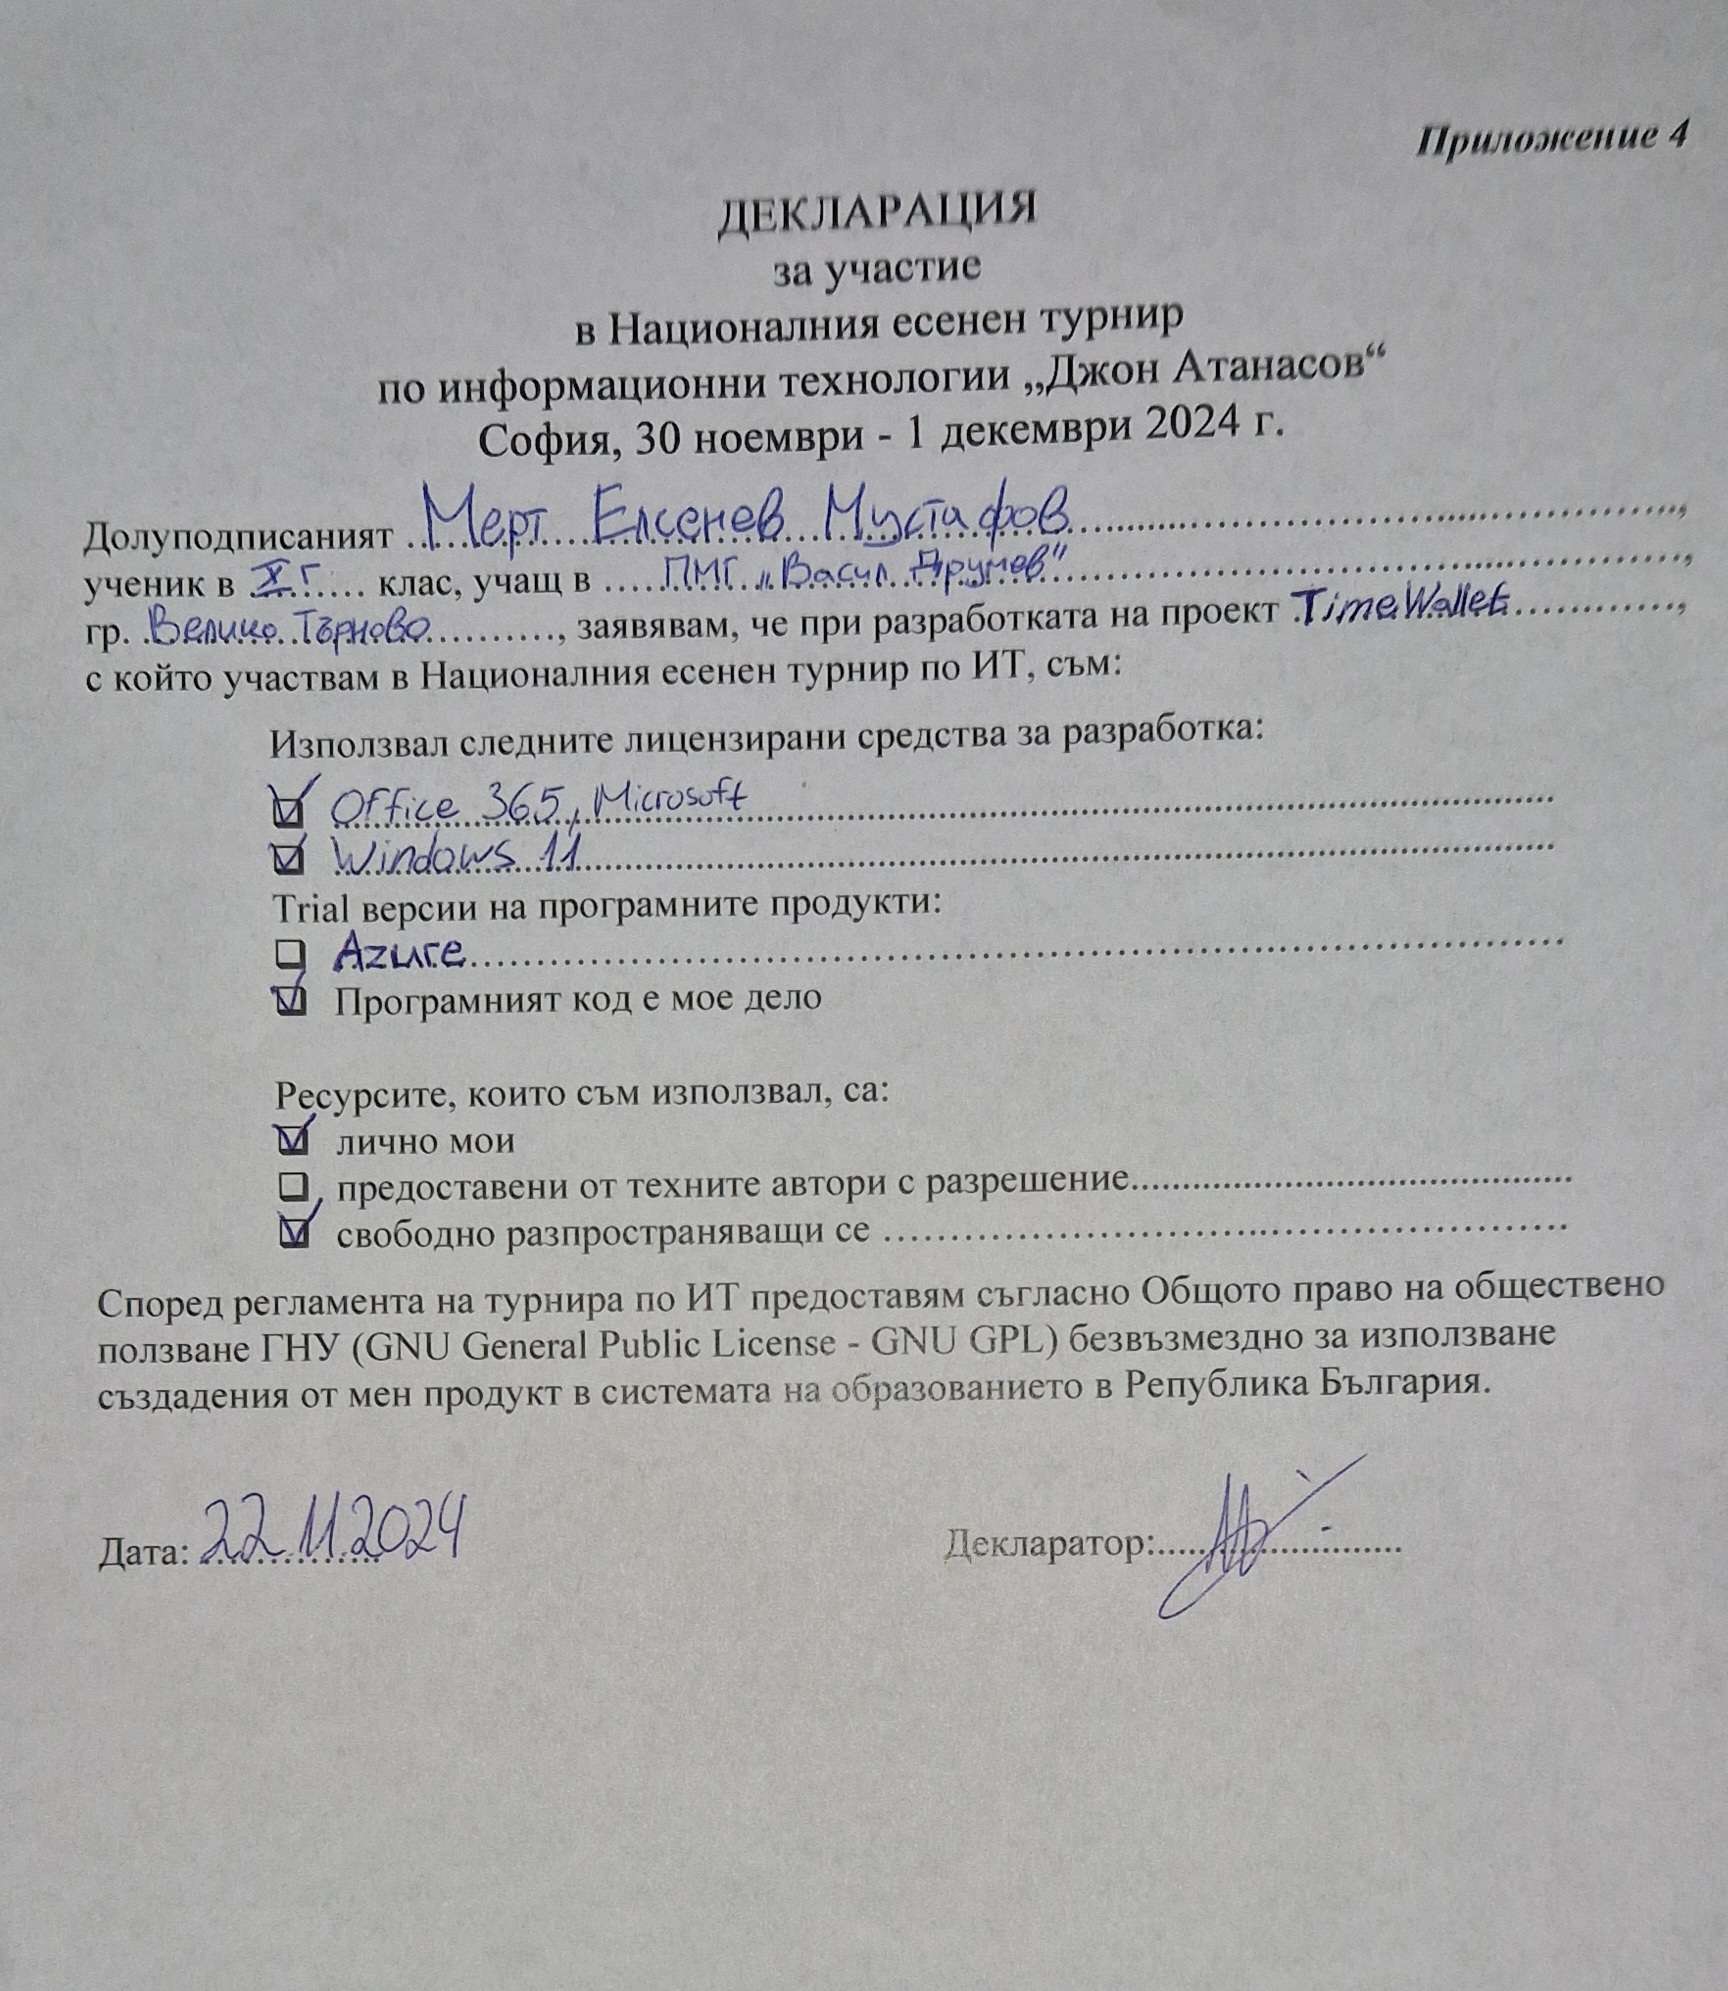 Приложение 4
ДЕКЛАРАЦИЯ
за участие
в Националния есенен турнир
по информационни технологии „Джон Атанасов“
София, 30 ноември - 1 декември 2024 г.
Долуподписаният Мерт Елсенев Мустафов,
ученик в Xг клас, учащ в ПМГ „Васил Друмев",
гр. Велико Търново, заявявам, че при разработката на проект TimeWallet,
с който участвам в Националния есенен турнир по ИТ, съм:
Използвал следните лицензирани средства за разработка:
Office 365, Microsoft
Windows 11
Trial версии на програмните продукти:
Azure
Програмният код е мое дело
Ресурсите, които съм използвал, са:
лично мои
предоставени от техните автори с разрешение
свободно разпространяващи се
Според регламента на турнира по ИТ предоставям съгласно Общото право на обществено
ползване ГНУ (GNU General Public License - GNU GPL) безвъзмездно за използване
създадения от мен продукт в системата на образованието в Република България.
Дата: 22.11.2024 Декларатор: